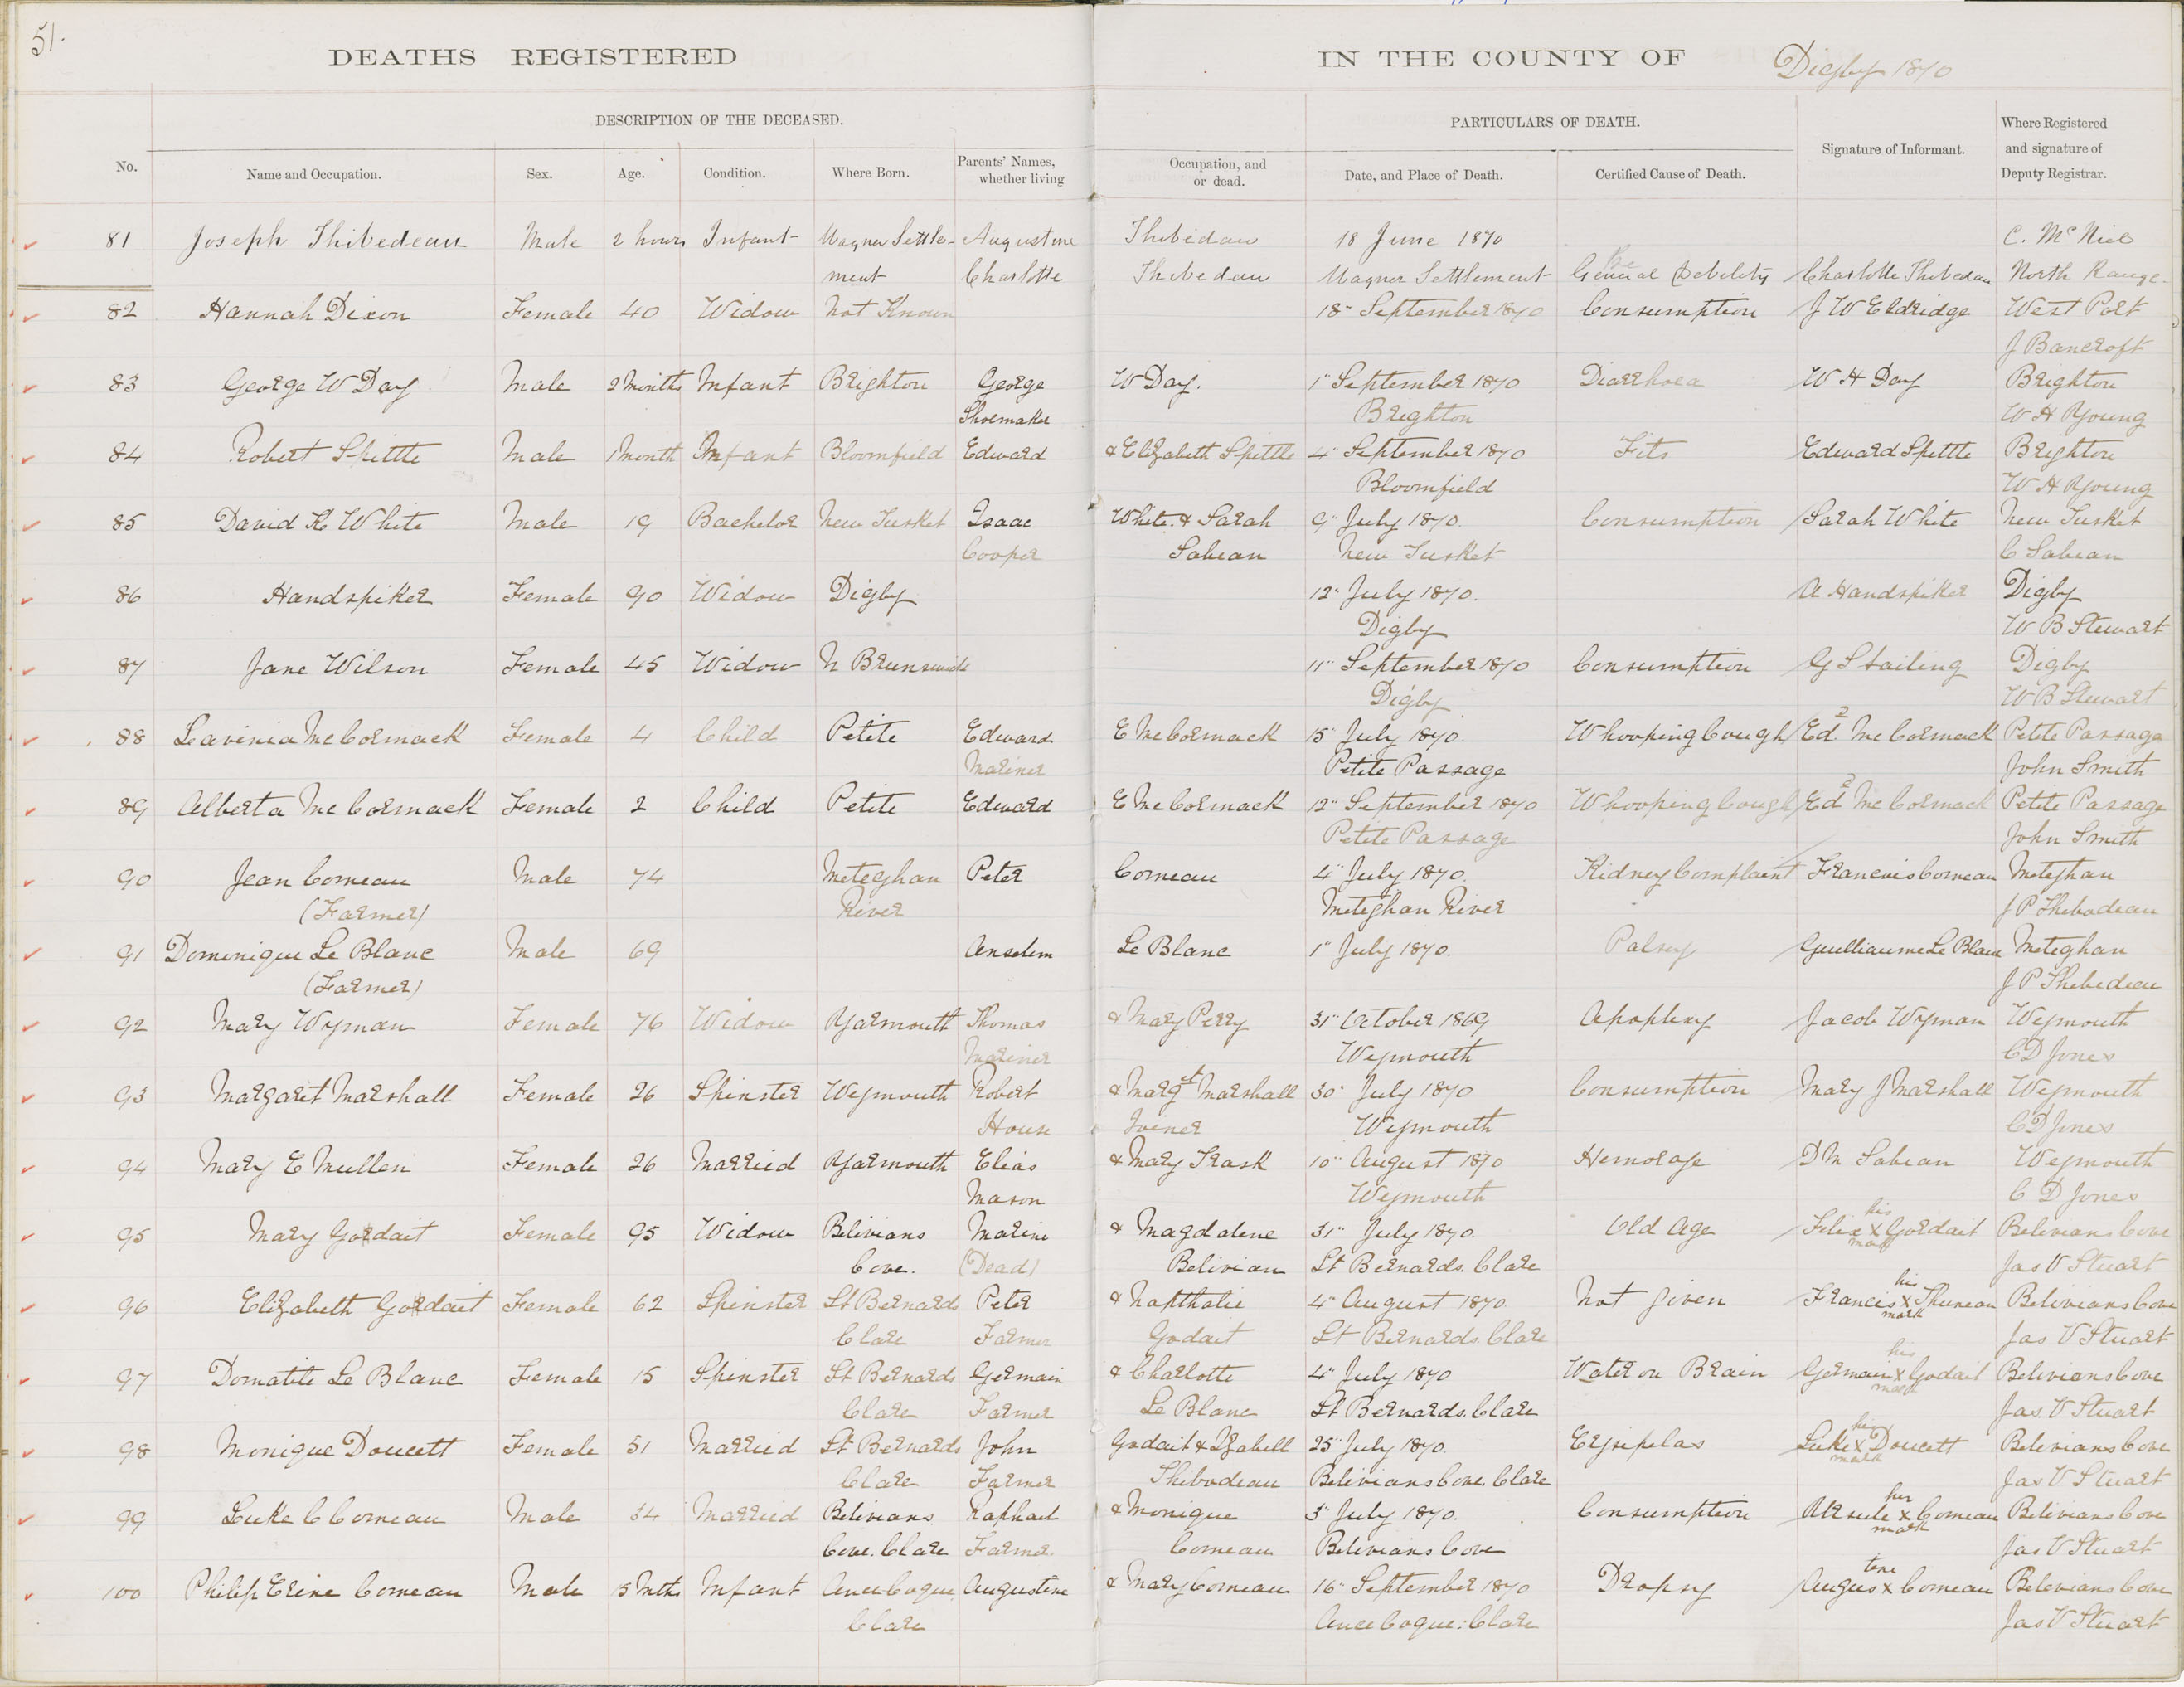 51.
DEATHS REGISTERED IN THE COUNTY OF Digby 1870
DESCRIPTION OF THE DECEASED. PARTICULARS OF DEATH.
No. Name and Occupation. Sex. Age. Condition. Where Born. Parents' Names, whether living Occupation, and or dead. Date, and Place of Death. Certified Cause of Death. Signature of Informant. Where Registered and signature of Deputy Registrar.
81 Joseph Thibedeau Male 2 hours Infant Wagner Settle- Augustine Thibedau 18 June 1870 C. McNiel
ment Charlotte Thibedau Wagner Settlement General Debility Charlotte Thibedau North Range
82 Hannah Dixon Female 40 Widow Not Known 18" September 1870 Consumption J W Eldridge West Port
J Bancroft
83 George W Day Male 2 Months Infant Brighton George W Day. 1" September 1870 Diarrhoea W H Day Brighton
Shoemaker Brighton W H Young
84 Robert Spittle Male 1 Month Infant Bloomfield Edward & Elizabeth Spittle 4" September 1870 Fits Edward Spittle Brighton
Bloomfield W H Young
85 David K White Male 19 Bachelor New Tusket Isaac White & Sarah 9" July 1870. Consumption Sarah White New Tusket
Cooper Sabean New Tusket C Sabean
86 Handspiker Female 90 Widow Digby 12" July 1870. A Handspiker Digby
Digby W B Stewart
87 Jane Wilson Female 45 Widow N Brunswick 11" September 1870 Consumption G Stailing Digby
Digby W B Stewart
88 Leavinia McCormack Female 4 Child Petite Edward E McCormack 15" July 1870. Whooping Cough Ed. 2 McCormack Petite Passage
Mariner Petite Passage John Smith
89 Alberta McCormack Female 2 Child Petite Edward E McCormack 12" September 1870 Whooping Cough Ed 2 McCormack Petite Passage
Petite Passage John Smith
90 Jean Comeau Male 74 Meteghan Peter Comeau 4" July 1870. Kidney Complaint Francois Comeau Meteghan
(Farmer) River Meteghan River J P Thebadeau
91 Dominique Le Blanc Male 69 Anselem Le Blanc 1" July 1870. Palsey Guilliaume Le Blanc Meteghan
(Farmer) J P Thebedeau
92 Mary Wyman Female 76 Widow Yarmouth Thomas & Mary Perry 31" October 1869 Apoplexy Jacob Wyman Weymouth
Mariner Weymouth C D Jones
93 Margaret Marshall Female 26 Spinster Weymouth Robert & Margt Marshall 30" July 1870 Consumption Mary J Marshall Weymouth
House Joiner Weymouth C D Jones
94 Mary E Mullen Female 26 Married Yarmouth Elias & Mary Trask 10" August 1870 Hemorage D M Sabean Weymouth
Mason Weymouth C D Jones
95 Mary Gordait Female 95 Widow Belivians Marine & Magdalene 31" July 1870. Old Age Felix his X mark Gordait Belivians Cove
Cove. (Dead) Belivian St Bernards. Clare Jas V Stuart
96 Elizabeth Gordait Female 62 Spinster St Bernards Peter & Napthalie 4" August 1870. Not given Francis his X mark Thuneau Belivians Cove
Clare Farmer Godait St Bernards. Clare Jas V Stuart
97 Domatite Le Blanc Female 15 Spinster St Bernards Germain & Charlotte 4" July 1870 Water on Brain Germain his X mark Godait Belivians Cove
Clare Farmer Le Blanc St Bernards. Clare Jas. V Stuart
98 Monique Doucett Female 51 Married St Bernards John Godait & Izabell 25" July 1870. Erysipelas Luke his X mark Doucett Belivians Cove
Clare Farmer Thibodeau Belivians Cove. Clare Jas V Stuart
99 Luke C Comeau Male 34 Married Belivians Raphael & Monique 3" July 1870. Consumption Ursule her X mark Comeau Belivians Cove
Cove. Clare Farmer. Comeau Belivians Cove Jas V Stuart
100 Philip Comeau Male 5 Mths Infant Ance Coque Augustine & Mary Comeau 16" September 1870 Dropsy Augus tine X Comeau Belivians Cove
Clare Ance Coque: Clare Jas V Stuart